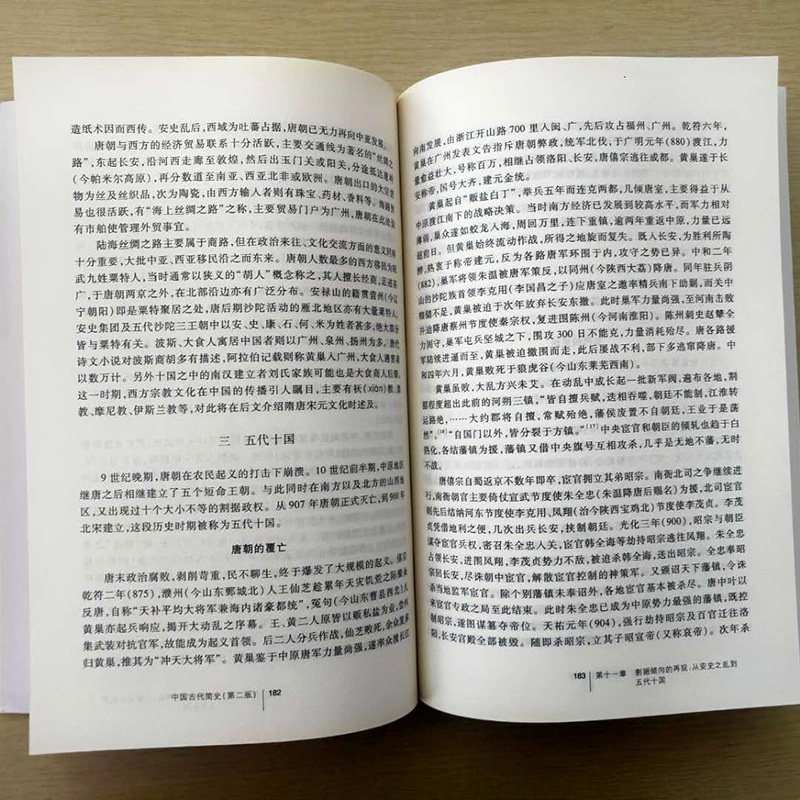 造纸术因而西传。安史乱后,西域为吐蕃占据,唐朝已无力再向中亚发展。
唐朝与西方的经济贸易联系十分活跃,主要交通线为著名的“丝绸之
路”,东起长安,沿河西走廊至敦煌,然后出玉门关或阳关,分途抵达葱岭
(今帕米尔高原),再分数道至南亚、西亚北非或欧洲。唐朝出口的大宗货
物为丝及丝织品,次为陶瓷,由西方输入者则有珠宝、药材、香料等。海路贸
易也很活跃,有“海上丝绸之路”之称,主要贸易门户为广州,唐朝在此设
有市舶使管理外贸事宜。
陆海丝绸之路主要属于商路,但在政治来往、文化交流方面的意义同样
十分重要,大批中亚、西亚移民沿之而东来。唐朝人数最多的西方移民为昭
武九姓粟特人,当时通常以狭义的“胡人”概念称之,其人擅长经商,足迹甚
广,于唐朝两京之外,在北部沿边亦有广泛分布。安禄山的籍贯营州(今辽
宁朝阳)即是粟特聚居之处,唐后期沙陀活动的雁北地区亦有大量粟特人。
安史集团及五代沙陀三王朝中以安、史、康、石、何、米为姓者甚多,绝大部分
皆与粟特有关。波斯、大食人寓居中国者则以广州、泉州、扬州为多。唐代
诗文小说对波斯商胡多有描述,阿拉伯记载则称黄巢入广州,大食人遇害者
以数万计。另外十国之中的南汉建立者刘氏家族可能也是大食商人后裔。
这一时期,西方宗教文化在中国的传播引人瞩目,主要有祆(xiān)教、景
教、摩尼教、伊斯兰教等,对此将在后文介绍隋唐宋元文化时述及。
三 五代十国
9 世纪晚期,唐朝在农民起义的打击下崩溃。10 世纪前半期,中原地区
相继唐之后相继建立了五个短命王朝。与此同时在南方以及北方的山西地
区,又出现过十个大小不等的割据政权。从 907 年唐朝正式灭亡,到 960 年
北宋建立,这段历史时期被称为五代十国。
唐朝的覆亡
唐末政治腐败,剥削苛重,民不聊生,终于爆发了大规模的起义。僖宗
乾符二年(875),濮州(今山东鄄城北)人王仙芝趁累年天灾饥荒之际聚众
反唐,自称“天补平均大将军兼海内诸豪都统”,冤句(今山东曹县西北)人
黄巢亦起兵响应,揭开大动乱之序幕。王、黄二人原皆以贩私盐为业,曾
集武装对抗官军,故能成为起义首领。后二人分兵作战,仙芝败死,余众复多
归黄巢,推其为“冲天大将军”。黄巢鉴于中原唐军力量尚强,遂率众渡长江
中国古代简史(第二版) 182
向南发展,由浙江开山路 700 里入闽、广,先后攻占福州、广州。乾符六年,
黄巢在广州发表文告指斥唐朝弊政,统军北伐,于广明元年(880)渡江,力
量益壮大,号称百万,相继占领洛阳、长安,唐僖宗逃往成都。黄巢遂于长
安称帝,国号大齐,建元金统。
黄巢起自“贩盐白丁”,举兵五年而连克两都,几倾唐室,主要得益于从
中原渡江南下的战略决策。当时南方经济已发展到较高水平,而军力相对
薄弱,巢众遂如蛟龙人海,周回万里,连下重镇,逾两年重返中原,力量已远
超前日。但黄巢始终流动作战,所得之地旋而复失。既入长安,为胜利所陶
醉,热衷于称帝建元,反为各路唐军环围于内,攻守之势已异。中和二年
(882),巢将领朱温被唐军策反,以同州(今陕西大荔)降唐。同年驻兵阴
山的沙陀族首领李克用(李国昌之子)应唐室之邀率精兵南下助剿,而关中
粮储不足,黄巢被迫于次年放弃长安东撤。此时巢军力量尚强,至河南击败
并迫降唐蔡州节度使秦宗权,复进围陈州(今河南淮阳)。陈州刺史赵犨全
力防守,巢军屯兵坚城之下,围攻 300 日不能克,力量消耗殆尽。唐各路援
军陆续进逼而至,黄巢被迫撤围而走,此后屡战不利,部下多逃窜降唐。中
和四年六月,黄巢败死于狼虎谷(今山东莱芜西南)。
黄巢虽败,大乱方兴未艾。在动乱中成长起一批新军阀,遍布各地,割
据程度超出此前的河朔三镇,“皆自擅兵赋,迭相吞噬,朝廷不能制,江淮转
运路绝,……大约郡将自擅,常赋殆绝,藩侯废置不自朝廷,王业于是荡
然”,[16]“自国门以外,皆分裂于方镇。”[17]中央宦官与朝臣的倾轧也趋于白
热化,各结藩镇为援,藩镇又借中央旗号互相攻杀,几乎是无地不藩,无时
不战。
唐僖宗自蜀返京不数年即卒,宦官拥立其弟昭宗。南衙北司之争继续进
行,南衙朝官主要倚仗宣武节度使朱全忠(朱温降唐后赐名)为援,北司宦官
则先后结纳河东节度使李克用、凤翔(治今陕西宝鸡北)节度使李茂贞。李茂
贞凭借地利之便,几次出兵长安,挟制朝廷。光化三年(900),昭宗与朝臣
谋夺宦官兵权,密召朱全忠入关,宦官韩全海等劫持昭宗逃往凤翔。朱全忠
占领长安,进围凤翔,李茂贞势力不敌,被迫杀韩全海,送出昭宗。全忠奉昭
宗回长安,尽诛朝中宦官,解散宦官控制的神策军。又颁诏天下藩镇,令诛
杀当地监军宦官。除个别藩镇未奉诏外,各地宦官基本被杀尽。唐中叶以
来宦官专政之局至此结束。此时朱全忠已成为中原势力最强的藩镇,既控
制昭宗,遂图谋篡夺帝位。天祐元年(904),强行劫持昭宗及百官迁往洛
阳,长安宫殿全部被毁。随即杀昭宗,立其子昭宣帝(又称哀帝)。次年杀
183 第十一章 割据倾向的再现:从安史之乱到
五代十国